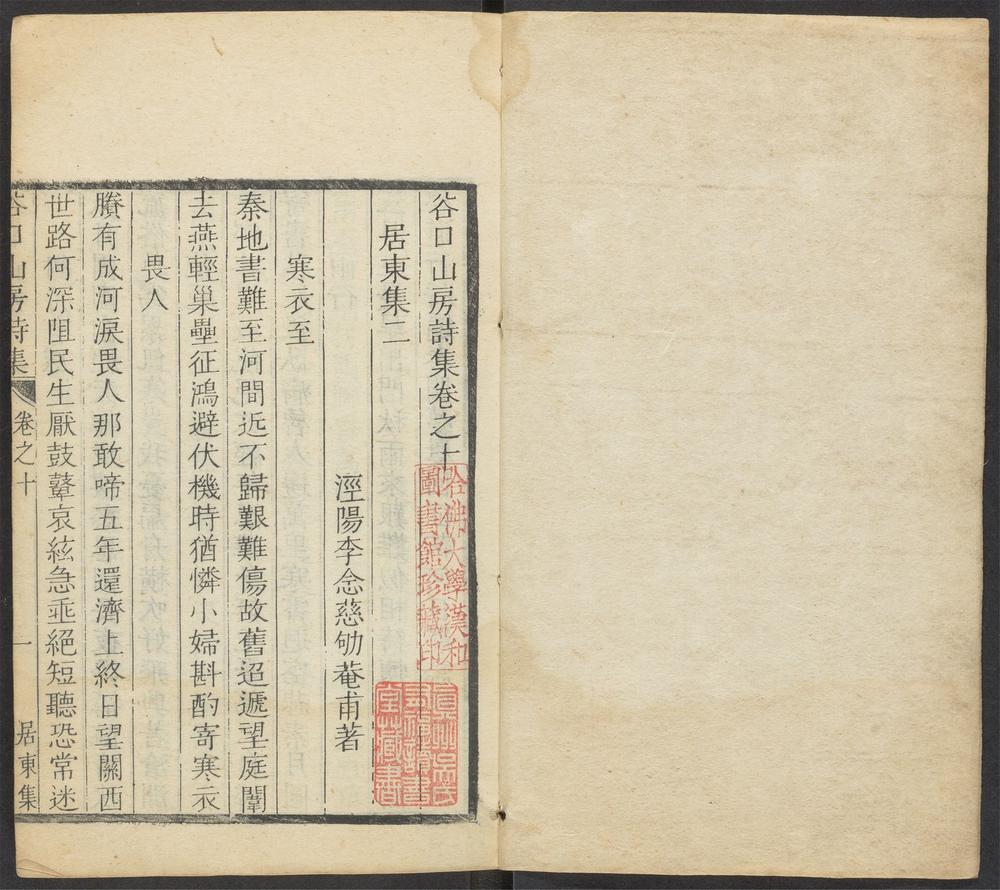 谷口山房詩集卷之十
居東集二
涇陽李念慈劬菴甫著
寒衣至
秦地書難至河間近不歸艱難傷故舊迢遞望庭闈
去燕輕巢壘征鴻避伏機時猶憐小婦斟酌寄寒衣
畏人
賸有成河淚畏人那敢啼五年還濟上終日望關西
世路何深阻民生厭鼓鼙哀絃急乖絕短聽恐常迷
谷口山房詩集
卷之十
一
居東集
哈佛大學漢和
圖書館珍藏印